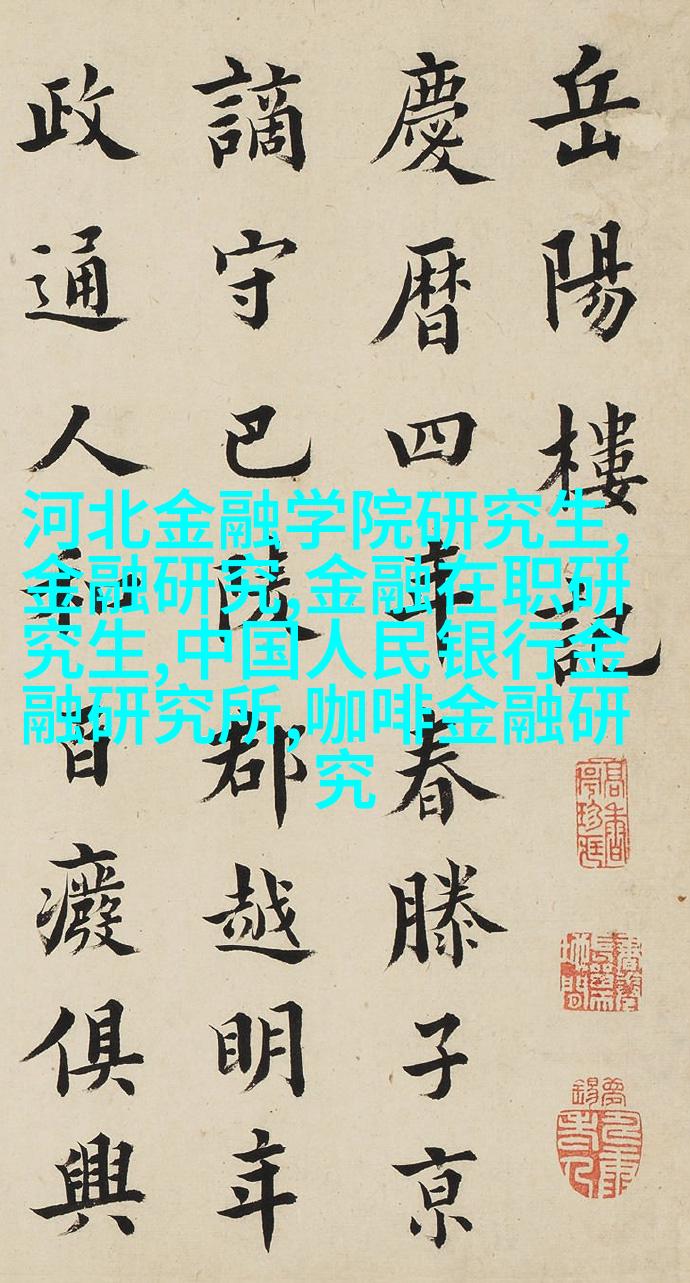 岳陽樓記
慶曆四年春滕子京
謫守巴陵郡越明年
政通人和百廢俱興
河北金融学院研究生,
金融研究,金融在职研
究生,中国人民银行金
融研究所,咖啡金融研
究